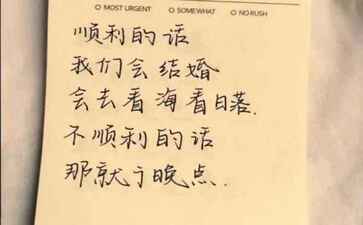 MOST URGENT SOMEWHAT NO RUSH
顺利的话
我们会结婚
会去看海看日落.
不顺利的话
那就于晚点.